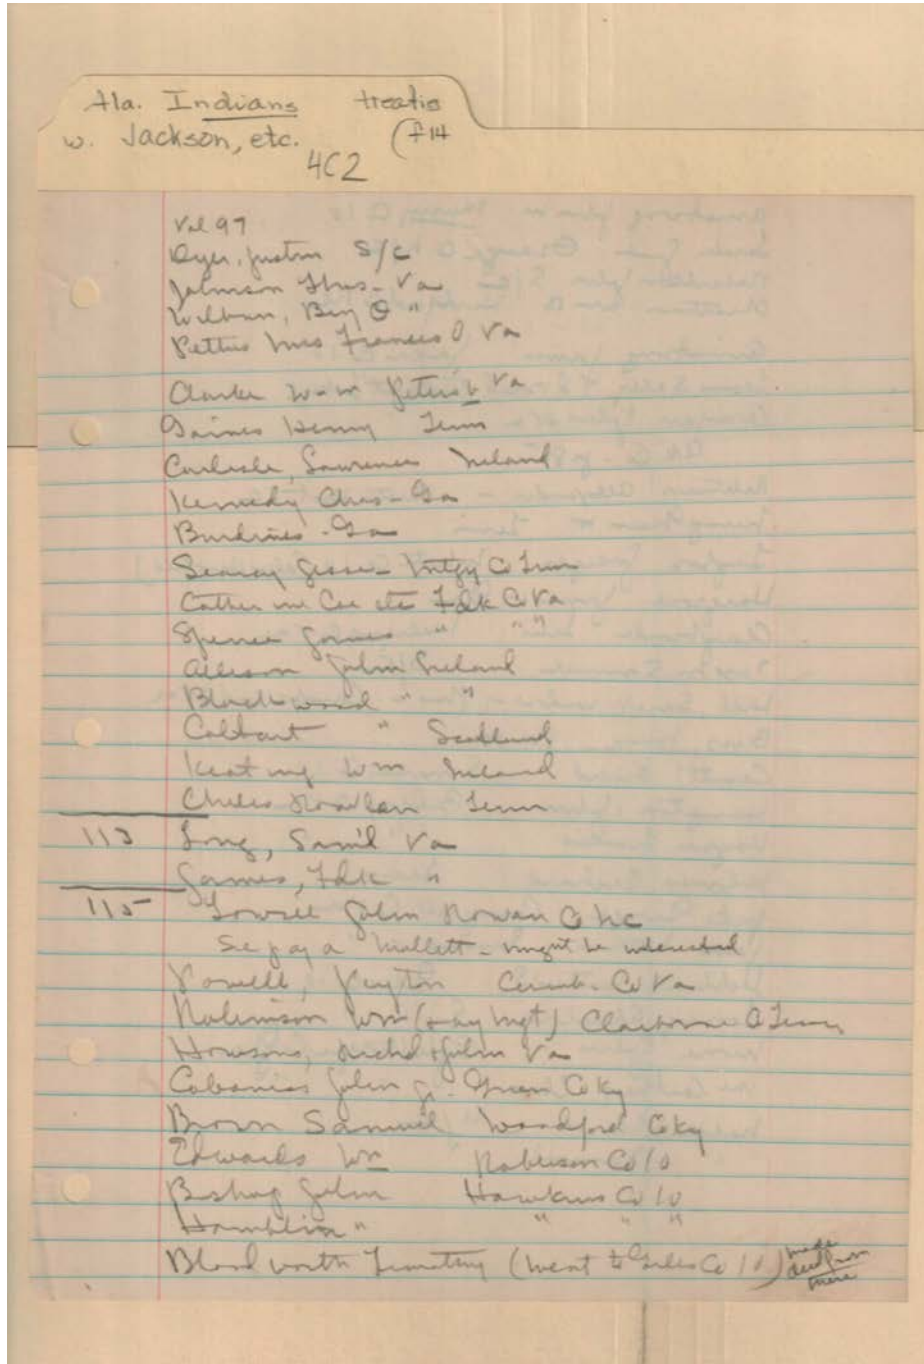 Ala. Indians treatie
w. Jackson, etc. (f 14
4C2
Vol 97
Dyer, Justin S/C
Johnson Thos - Va
Wilburn, Benj O "
Pettus Mrs Frances O Va
Clarke Wm Petersb Va
Gaines Henry Tenn
Carlisle, Lawrence Ireland
Kennedy Chas - Ga
Burdines - Ga
Searcy Jesse - Mtgy Co Tenn
Catherine Coe etc Fdk Co Va
Spence James " " "
Allison John Ireland
Blackwood " "
Colbart " Scotland
Keating Wm Ireland
Chiles Rowlan Tenn
113 Long, Saml Va
James, Fdk "
115 John Rowan Co NC
See pay a Mallett - might be interested
Powell, Peyton Co Va
Robinson Wm (Claiborne Co Tenn
Howsons, John Va
Cabaniss John Green Co Ky
Brown Samuel Woodford Co Ky
Edwards Wm Roberson Co 10
Bishop John Hawkins Co 10
Hamblin " " " "
Bloodworth Timothy (went to Giles Co 10) made deed from there